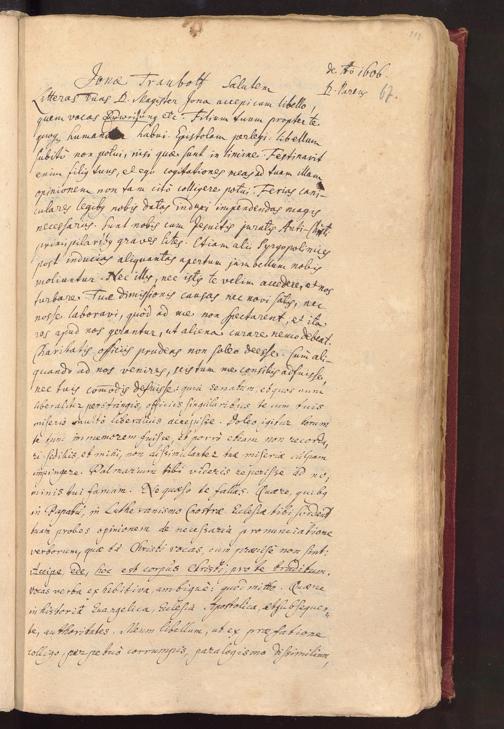 de Aõ 1606
D. Pareus 67.
Jonæ Trauboth Salutem
Litteras Tuas D. Magister Jona accepi cum libello,
quem vocas etc. Filium tuum propter te
quoq; humaniter habui. Epistolam perlegi: libellum
subitò non potui, nisi quæ sunt in limine. Festinavit
enim filius tuus, et ego cogitationes meas ad tuam illam
opinionem non tam citò colligere potui. Ferias cani-
culares legibus nobis datas indupi impendendas magis
necessarijs. Sunt nobis cum Jesuitis juratis Anti-Christi
primipilaribus graves lites. Etiam alii Pyrgopolinices
post inducias aliquantas apertum jam bellum nobis
moliuntur. Nec illis, nec istis te velim accedere, et nos
turbare. Tuæ dimissionis causas nec novi satis, nec
nosse laboravi, quòd ad me non spectarent, et ita
res apud nos gerantur, ut aliena curare nemo debeat.
Charitatis officiis prudens non soleo deesse. Cum ali-
quandò ad nos venires, testum me consilijs adfuisse,
nec tuis comodis defuisse: quin senatum, et quos nunc
liberaliter perstringis, officiis singularibus tecum tuis
miseriis multò liberalius accepisse. Doleo igitur eorum
te nunc immemorem fuisse, et porrò etiam non recorda-
ri fidihis, et mihi, non dissimulanter tuæ miseriæ culpam
impingere. Palmarium tibi viceris reperisse ad no-
minis tui famam. Ne quæso te fallas. Quære, quibus
in Papatu, in Lutheranismo Nostræ Ecclesiæ tibi videat
tuam probes opinionem de necessaria pronunciatione
verborum, quæ tu Christi vocas, cum præcisè non sint:
Accipe, ede, hoc est corpus Christi, pro te traditum.
vocas verba exhibitiva, ambiguè: quod mitto. Quære
in historia Evangelica, Ecclesia Apostolica, et subsequen-
te, authoritates. Meum libellum, ut ex præfatione
colligo, perpetuò corrumpis, paralogismo dissimilium,